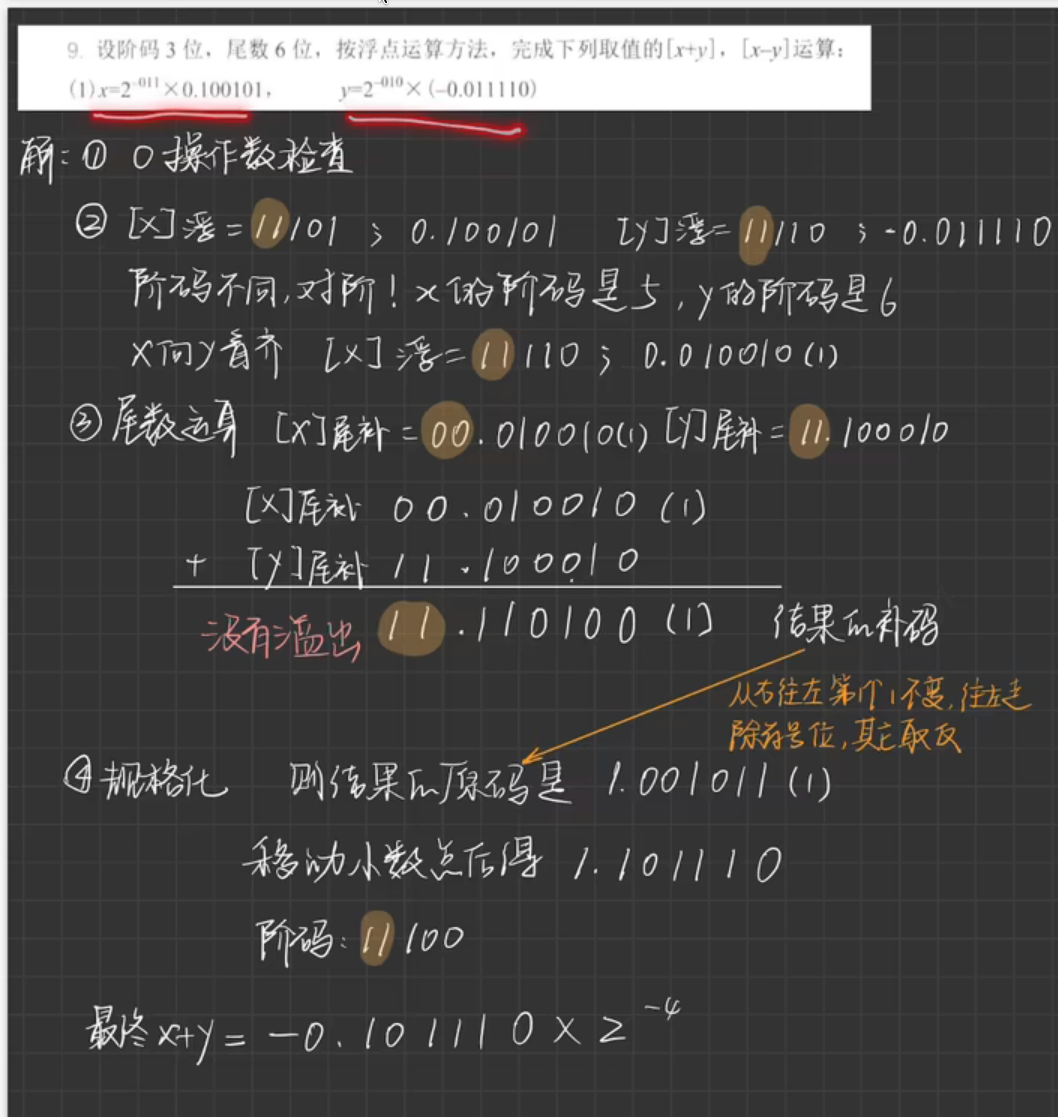 9. 设阶码 3 位，尾数 6 位，按浮点运算方法，完成下列取值的[x+y]，[x–y]运算：
(1)x=2⁻⁰¹¹×0.100101，　　y=2⁻⁰¹⁰×(–0.011110)
解：① 0操作数检查
② [X]浮=11101 ; 0.100101　[Y]浮=11110 ; -0.011110
阶码不同,对阶！x的阶码是5，y的阶码是6
X向Y看齐　[X]浮=11110 ; 0.010010(1)
③ 尾数运算　[X]尾补=00.010010(1)　[Y]尾补=11.100010
[X]尾补 00.010010 (1)
+ [Y]尾补 11.100010
没有溢出 11.110100 (1)　结果的补码
从右往左第个1不变,往左走
除符号位,其它取反
④ 规格化　则结果的原码是 1.001011(1)
移动小数点后得 1.101110
阶码：11100
最终x+y = -0.101110×2⁻⁴